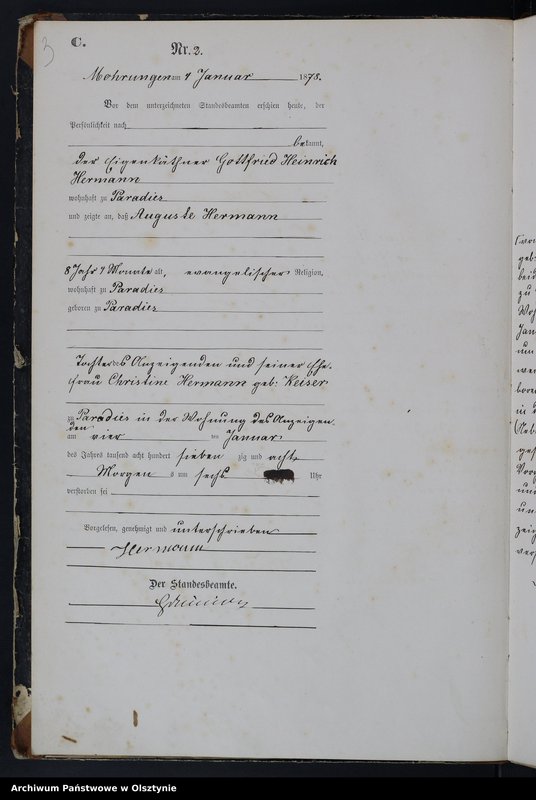 3
C.
Nr. 2.
Mohrungen am 7 Januar 1878.
Vor dem unterzeichneten Standesbeamten erschien heute, der
Persönlichkeit nach
bekannt,
der Eigenkäthner Gottfried Heinrich
Hermann
wohnhaft zu Paradies
und zeigte an, daß Auguste Hermann
8 Jahr 7 Monate alt, evangelischer Religion,
wohnhaft zu Paradies
geboren zu Paradies
Tochter des Anzeigenden und seiner Ehe-
frau Christine Hermann geb: Keiser
zu Paradies in der Wohnung des Anzeigen
den
am vier ten Januar
des Jahres tausend acht hundert sieben zig und acht
Morgen s um sechs Uhr
verstorben sei
Vorgelesen, genehmigt und unterschrieben
Hermann
Der Standesbeamte.
Archiwum Państwowe w Olsztynie